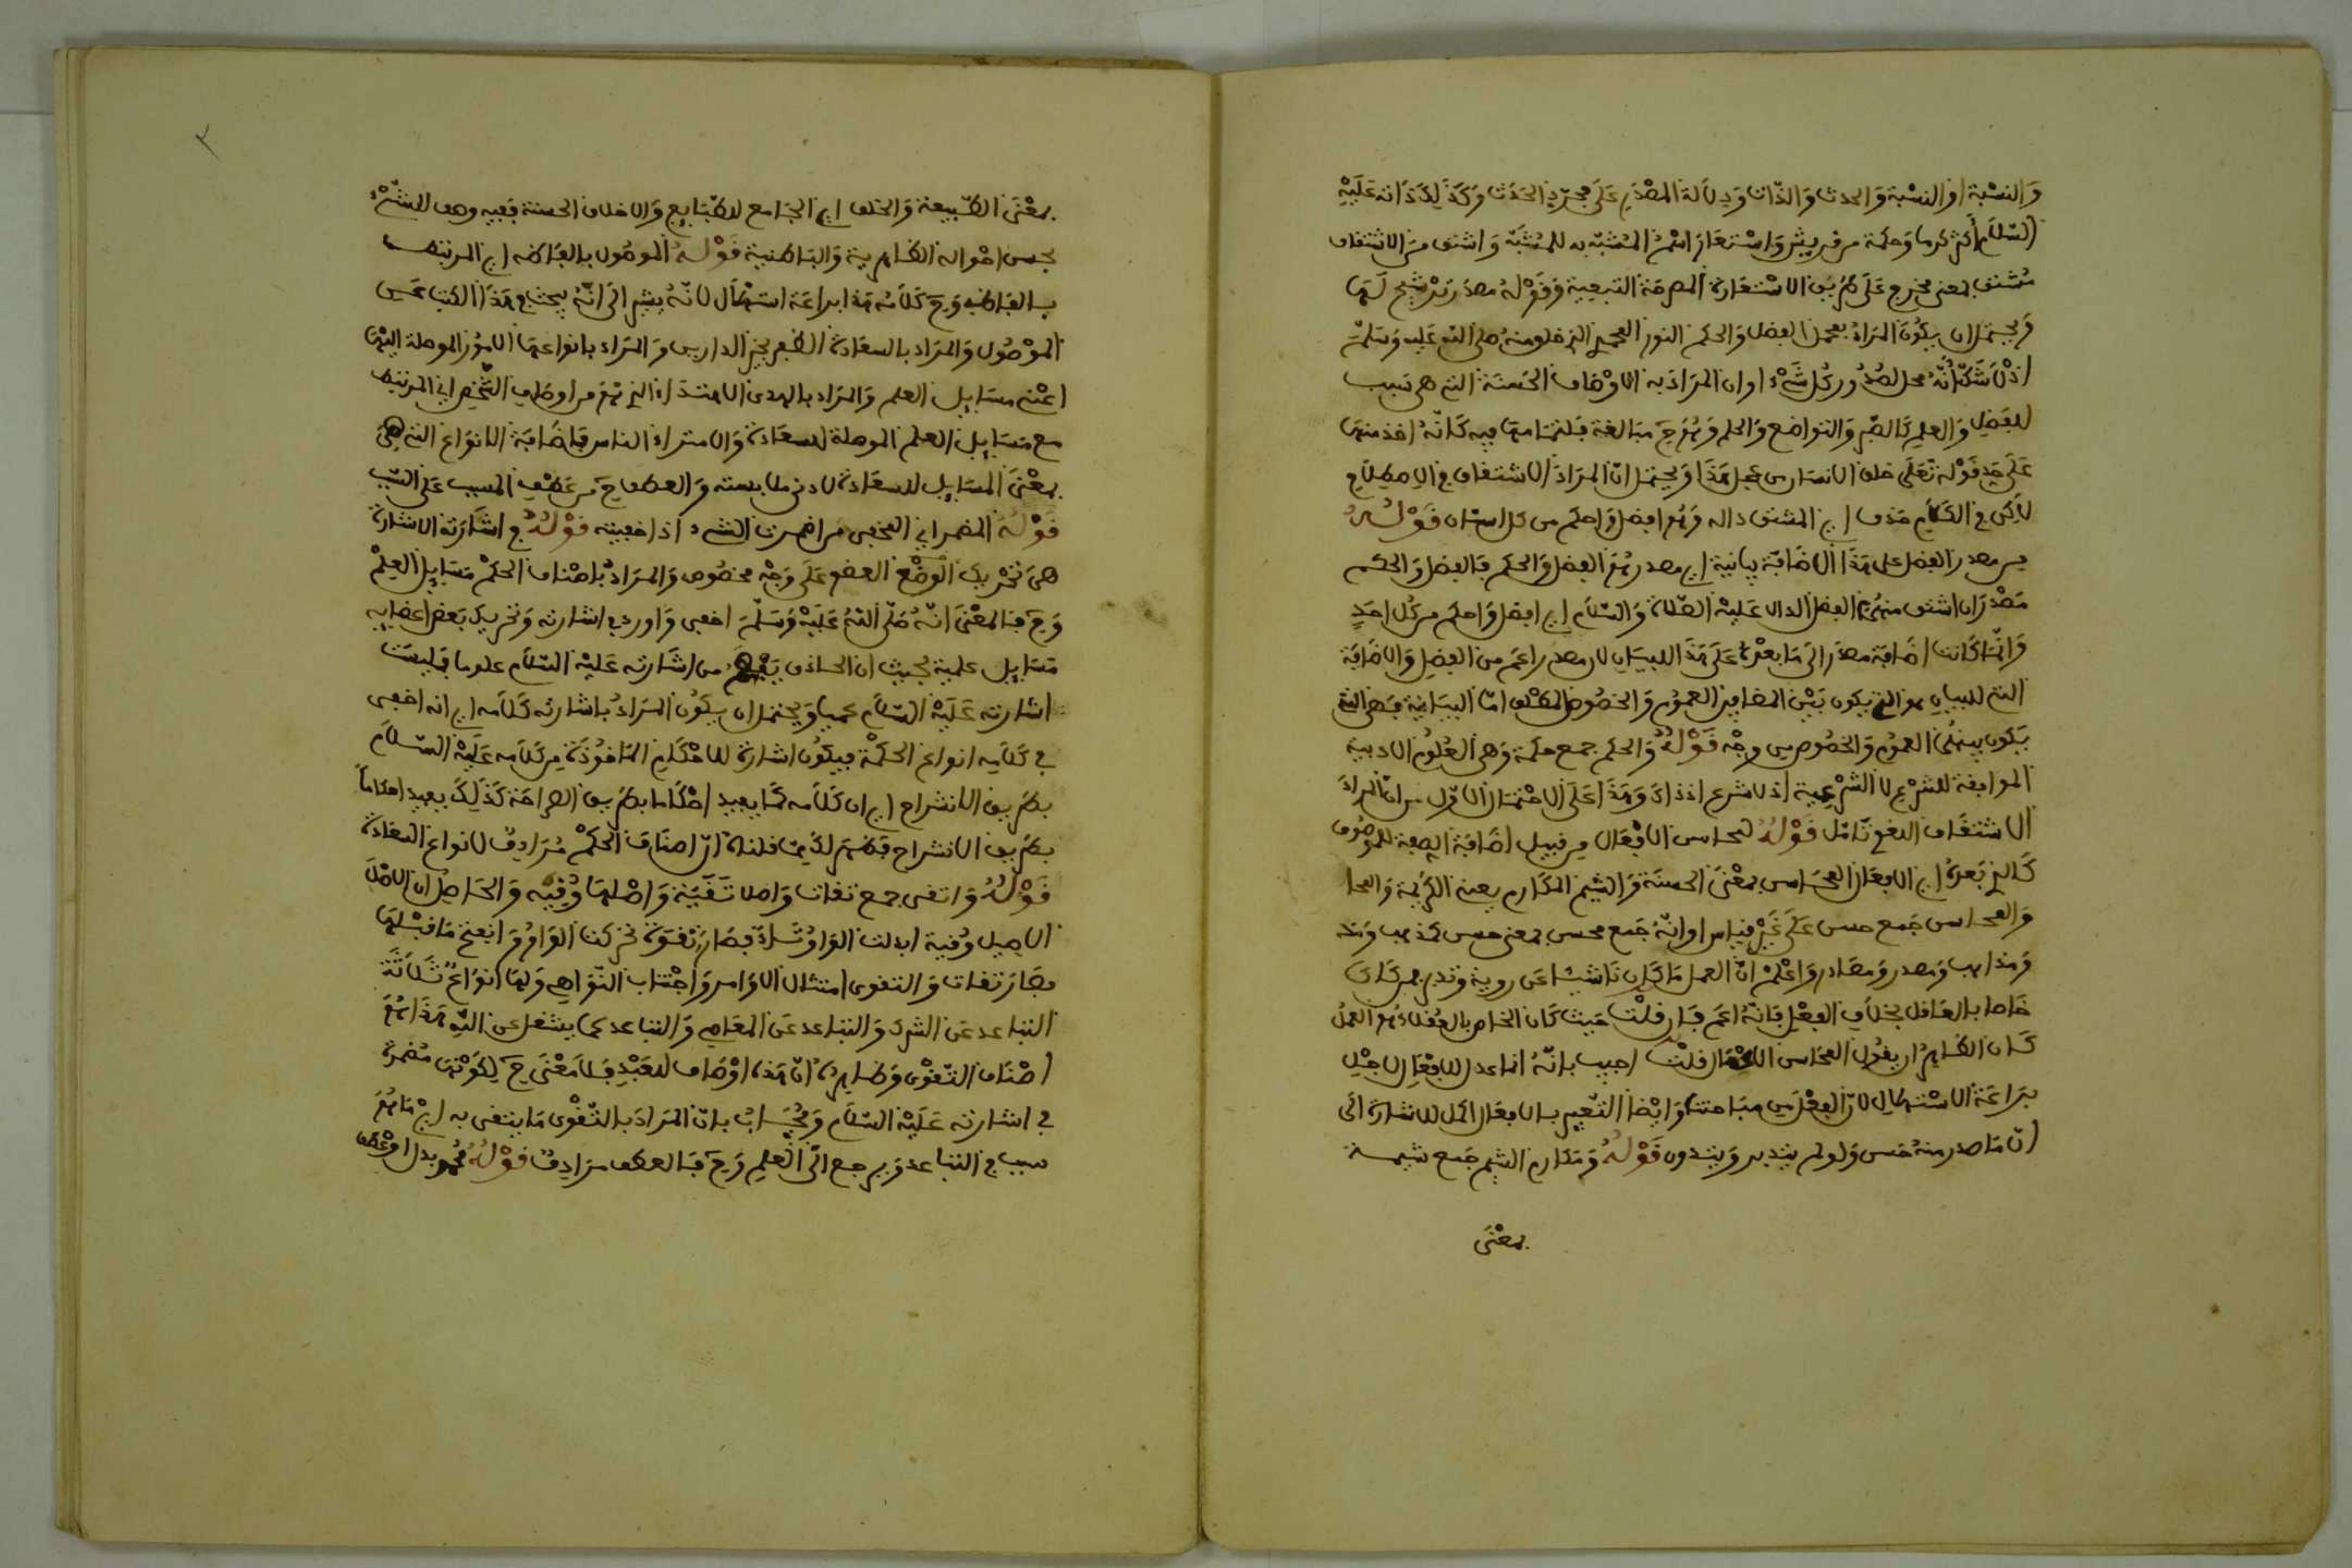 وَالنسْبة او النسْبة وَالحدث وَالذّات وَدِلَالة المصْدَرِ عَلَى مجرّدِ الحَدَث وَكَذَلِكَ ذَاته عَلَيْهِ
السّلَام أكثر كرما وَحكمة من غيره وَاسْتعَارَ اسْمُ المُشبّه به للمُشَبّه وَاشتق مِنَ الاشتقاق
مُشتق بمعنى مخرج عَلَى طَرِيق الاسْتعَارة المصرحَة التبعِية وَقَوْلهُ مصْدر تَرْشِيح لَهَا
وَيحتمل ان يكونَ المرَادُ بمحل الفضل وَالحكم النور المحمدي الذي خلق منهُ صلى الله عَليه وَسلم
اذْ لَا شَكّ أنّهُ محل لصُدُور كُل شَىْء او ان المرَاد به الاوْصَاف الحَسنَة التي هي سَبب
للفَضلِ وَالعلمِ كَالصّبرِ وَالتواضع وَالحلم وَهُوَ ح مبَالغة فلتمَامهَا فيه كَانّهُ اخذ منهَا
عَلَى حَدِ قَوْله تَعَلَى خلق الانسَان من عجل هَذَا وَيحتمل انّ المرَادَ الاشتقاق في الاصطِلَاحِ
لَاكن في الكَلَامِ حذف اي المشتق داله وَهُوَ افضل وَاحكم من كل انسَان قَوْلُهُ
من مصدر الفضل على هَذَا الاضَافة بيَانية اي مصدر هُوَ الفضل وَالحكم فالفضل وَالحكم
مَصْدرَان اشتق منهُمَا الفضل الدال عَليْه الصّلاة وَالسّلَام اي افضل وَاحكم من كُل احَدٍ
وَانّمَا كَانت اضَافة مصدر الَى مَا بعْدهُ عَلَى هَذَا للبيَانِ لان مصدر اعَم من الفضلِ وَالاضَافَة
التي للبيَانِ هو التي يكون بَيْن المضافين العمُوم وَالخصُوص المطْلق امّا البيَانية فهي التي
يَكون بينهُمَا العمُوم وَالخصُوص من وجْه قَوْلُهُ وَالحكم جمع حكمة وَهيَ العُلُوم الادبية
الموافقة للشرْعِ لا الشرْعِية اذ لا شرع اذ ذاكَ وَهَذَا عَلَى الاحْتمَال الاوّل من انّ المرَادَ
الاشتقاق اللغوي تَامّل قَوْلُهُ لمحاسن الافْعَال من قبيل اضَافة الصفة للموصُوف
كَالذي بَعدهُ اي الافعَال المحَاسن بمعْنَى الحسنَة وَالشيم المكَارم يعني الكَرِيمة وَالمحا
وَالمحَاسن جَمع حسن عَلَى غَيْر قيَاس او انّهُ جَمع محسن بمعنى حسن كمذهب وَمذ
وَمذاهب وَمصدر وَمصَادر وَاعْلمْ انّ العمل مَا كَان نَاشيئا عَن روية وَتدبر فهو كَان
خَاصا بالعَاقل بخلَاف الفِعْلِ فَانّهُ اعَم فَان قلْت حَيث كَان الخَاص بالعُقلاء هُوَ العمَلُ
كَان الظّاهِرُ ان يقُول المحَاسن الاعْمَال قلْت اجيب بانّهُ انما عدل للافْعَالِ لاجْلِ
بَرَاعَة الاسْتهلَال لانّ الفِعْل من مبَاحثنَا وَايْضا التّعبير بالافعَال اكمل للاشارة الَى
انّ مَا صدر منهُ حَسن وَلو لم يتدبر وَيتدون قَوْلُهُ وَمَكَارم الشيم جَمع شيمة
بمعْنَى
٢
بمعْنَى الطّبيعة وَالخلق اي الجَامع للطّبَايع وَالاخلاق الحسنَة ففيه وصف للشّىْء
بحسن احْواله الظَاهرية وَالبَاطنية قَوْلهُ الموصُول بالفَاظه اي المرتبط
بالفَاظه وَفي كَلَامه هَذا برَاعَة استهْلَال لانّهُ يشير الَى انّهُ يبحث في هَذَا الكتَاب عَن
الموْصُول وَالمرَاد بالسعَادة الظفر بخير الدارين وَالمرَاد بانواعهَا الامُور الموصلة اليْهَا
اعْني مسَايل العلم وَالمرَاد بالهدى الاهتدَاء الذي هُوَ من اوصَاف الشّخص اي المرتبط
مع مَسَايل العلم الموصلة للسعَادة وَالاهتدَاء الناس فاضَافة الانوَاع التي هِيَ
بمعْنَى المسَايل للسعَادة لادنى ملابسة وَالعطف ح من عَطفِ المسبب عَلى السّبب
قَوْلهُ المضمر اي المخفي من اضمرت الشىء اذا اخفيته قَوْلُهُ في اشَارَته الاشارة
هيَ تَحْرِيك الْوضْع العضو عَلَى وَجْه مخصُوص وَالمرَادُ باصْناف الحكَمْ مَسَايل العِلمْ
وَح فَالمعْنَى انّهُ صَلّى اللهُ عَلَيْهِ وَسَلّمَ اخفى وَاورد في اشارته وَتحريك بَعض اعضَايه
مَسَايل علمية بحيث ان الحَاذق يَفْهَمُ من اشَارته عَلَيْه السّلَام علوما فَليسَت
اشارته عَلَيْه السّلَام عبثا وَيحتمل ان يكَون المرَادُ باشارته كَلَامه اي انه اخفى
في كَلَامِه انوَاع الحكْمة فيكُون اشارة للاحْكَام المَاخوُذَة مِن كَلَامه عَلَيْهِ السّلَام
بطَرِيق الانشراح اي ان كَلَامه كَمَا يفيد احْكَاما بطَرِيق الصرَاحَة كَذَلِكَ يفيد احكاماً
بطَرِيق الانشراح فظهَرَ لَكَ ممّا قلنَاهُ انّ اصنَاف الحكَمْ مُرَادِفٌ لانوَاع السعَادة
قَوْلُهُ وَاتقى جمع تقات وَاصلا تَقَيَة وَاصْلهَا وُقيَه وَالحَاصِل ان الاصْلَ
الاصِيل وُقية ابدلت الوَاوُ تَاء فصَارَ تُقَيَة تحركت الوَاوُ وَانفتح مَا قبْلهَا
فصَارَ تقات وَالتقوى امتثال الاوَامر وَاجْتناب النّوَاهي وَلهَا انوَاعٌ ثَلَاثَة
التباعد عَن الشرك وَالتباعد عَن المعَاصي وَالتباعد عما يشغل عن اللهِ هَذَا هُوَ
اصْنَاف التّقْوَى وَظاهرهُ انّ هَذهِ اوْصَاف للعَبْدِ فَلَا مَعْنَى ح لِكَوْنهَا مُضمرة
في اشارته عَلَيْه السّلَام وَيُجَابُ بانّ المرَادَ بالتّقْوَى مَا يتقى به ايْ مَا هُوَ
سبب في التباعد وَيرجع الَى الْعِلمِ وَح فَالعطف مرَادِفٌ قَوْلُهُ مُحمد بدل اوْ عَطف